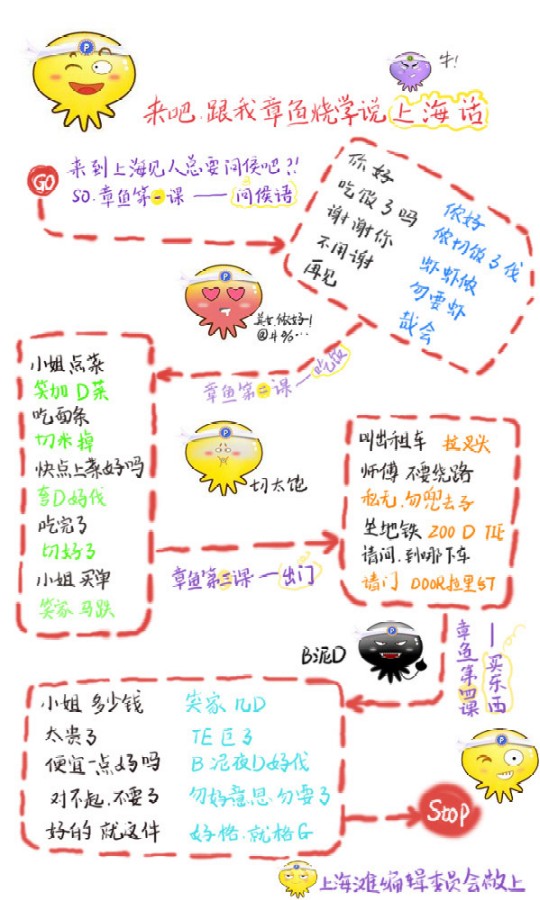 牛!
来吧.跟我章鱼烧学说上海话
GO
来到上海见人总要问侯吧?!
SO.章鱼第一课——问候语
你好
侬好
吃饭了吗
侬切饭了伐
谢谢你
虾虾侬
不用谢
勿要虾
再见
哉会
@#%…
章鱼第二课——吃饭
小姐点菜
笑加D菜
吃面条
切米掉
快点上菜好吗
弯D好伐
吃完了
切好了
小姐买单
笑家马跌
切太饱
章鱼第三课—出门
叫出租车
师傅不要绕路
私无.勿兜去子
坐地铁 ZOO D TIE
请问.到哪下车
请门 DOOR拉里ST
B泥D
章鱼第四课
——买东西
小姐 多少钱 笑家几D
太贵了 TE巨了
便宜一点好吗 B泥夜D好伐
对不起.不要了 勿好意思.勿要了
好的 就这件 好格.就格G
Stop
上海滩编辑委员会敬上